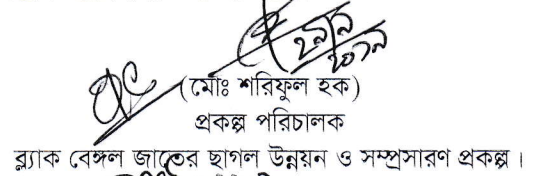 (মোঃ শরিফুল হক)
প্রকল্প পরিচালক
ব্ল্যাক বেঙ্গল জাতের ছাগল উন্নয়ন ও সম্প্রসারণ প্রকল্প।